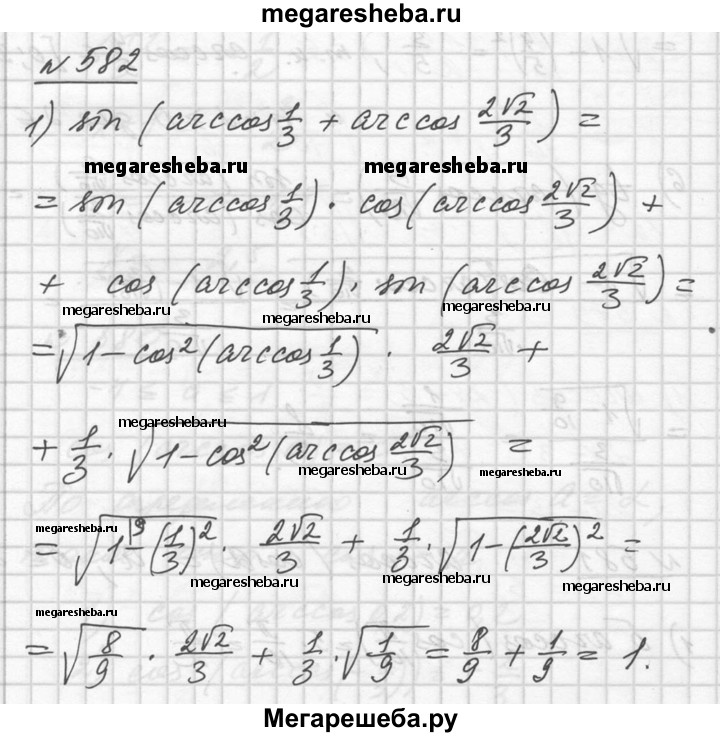 megaresheba.ru
№ 582
1) sin (arccos 1/3 + arccos 2√2/3) =
megaresheba.ru megaresheba.ru
= sin (arccos 1/3) · cos (arccos 2√2/3) +
+ cos (arccos 1/3) · sin (arccos 2√2/3) =
megaresheba.ru megaresheba.ru megaresheba.ru
= √(1 - cos² (arccos 1/3)) · 2√2/3 +
megaresheba.ru
+ 1/3 · √(1 - cos² (arccos 2√2/3)) =
megaresheba.ru megaresheba.ru
megaresheba.ru
= √(1 - (1/3)²) · 2√2/3 + 1/3 · √(1 - (2√2/3)²) =
megaresheba.ru megaresheba.ru megaresheba.ru
megaresheba.ru
= √(8/9) · 2√2/3 + 1/3 · √(1/9) = 8/9 + 1/9 = 1.
Мегарешеба.ру